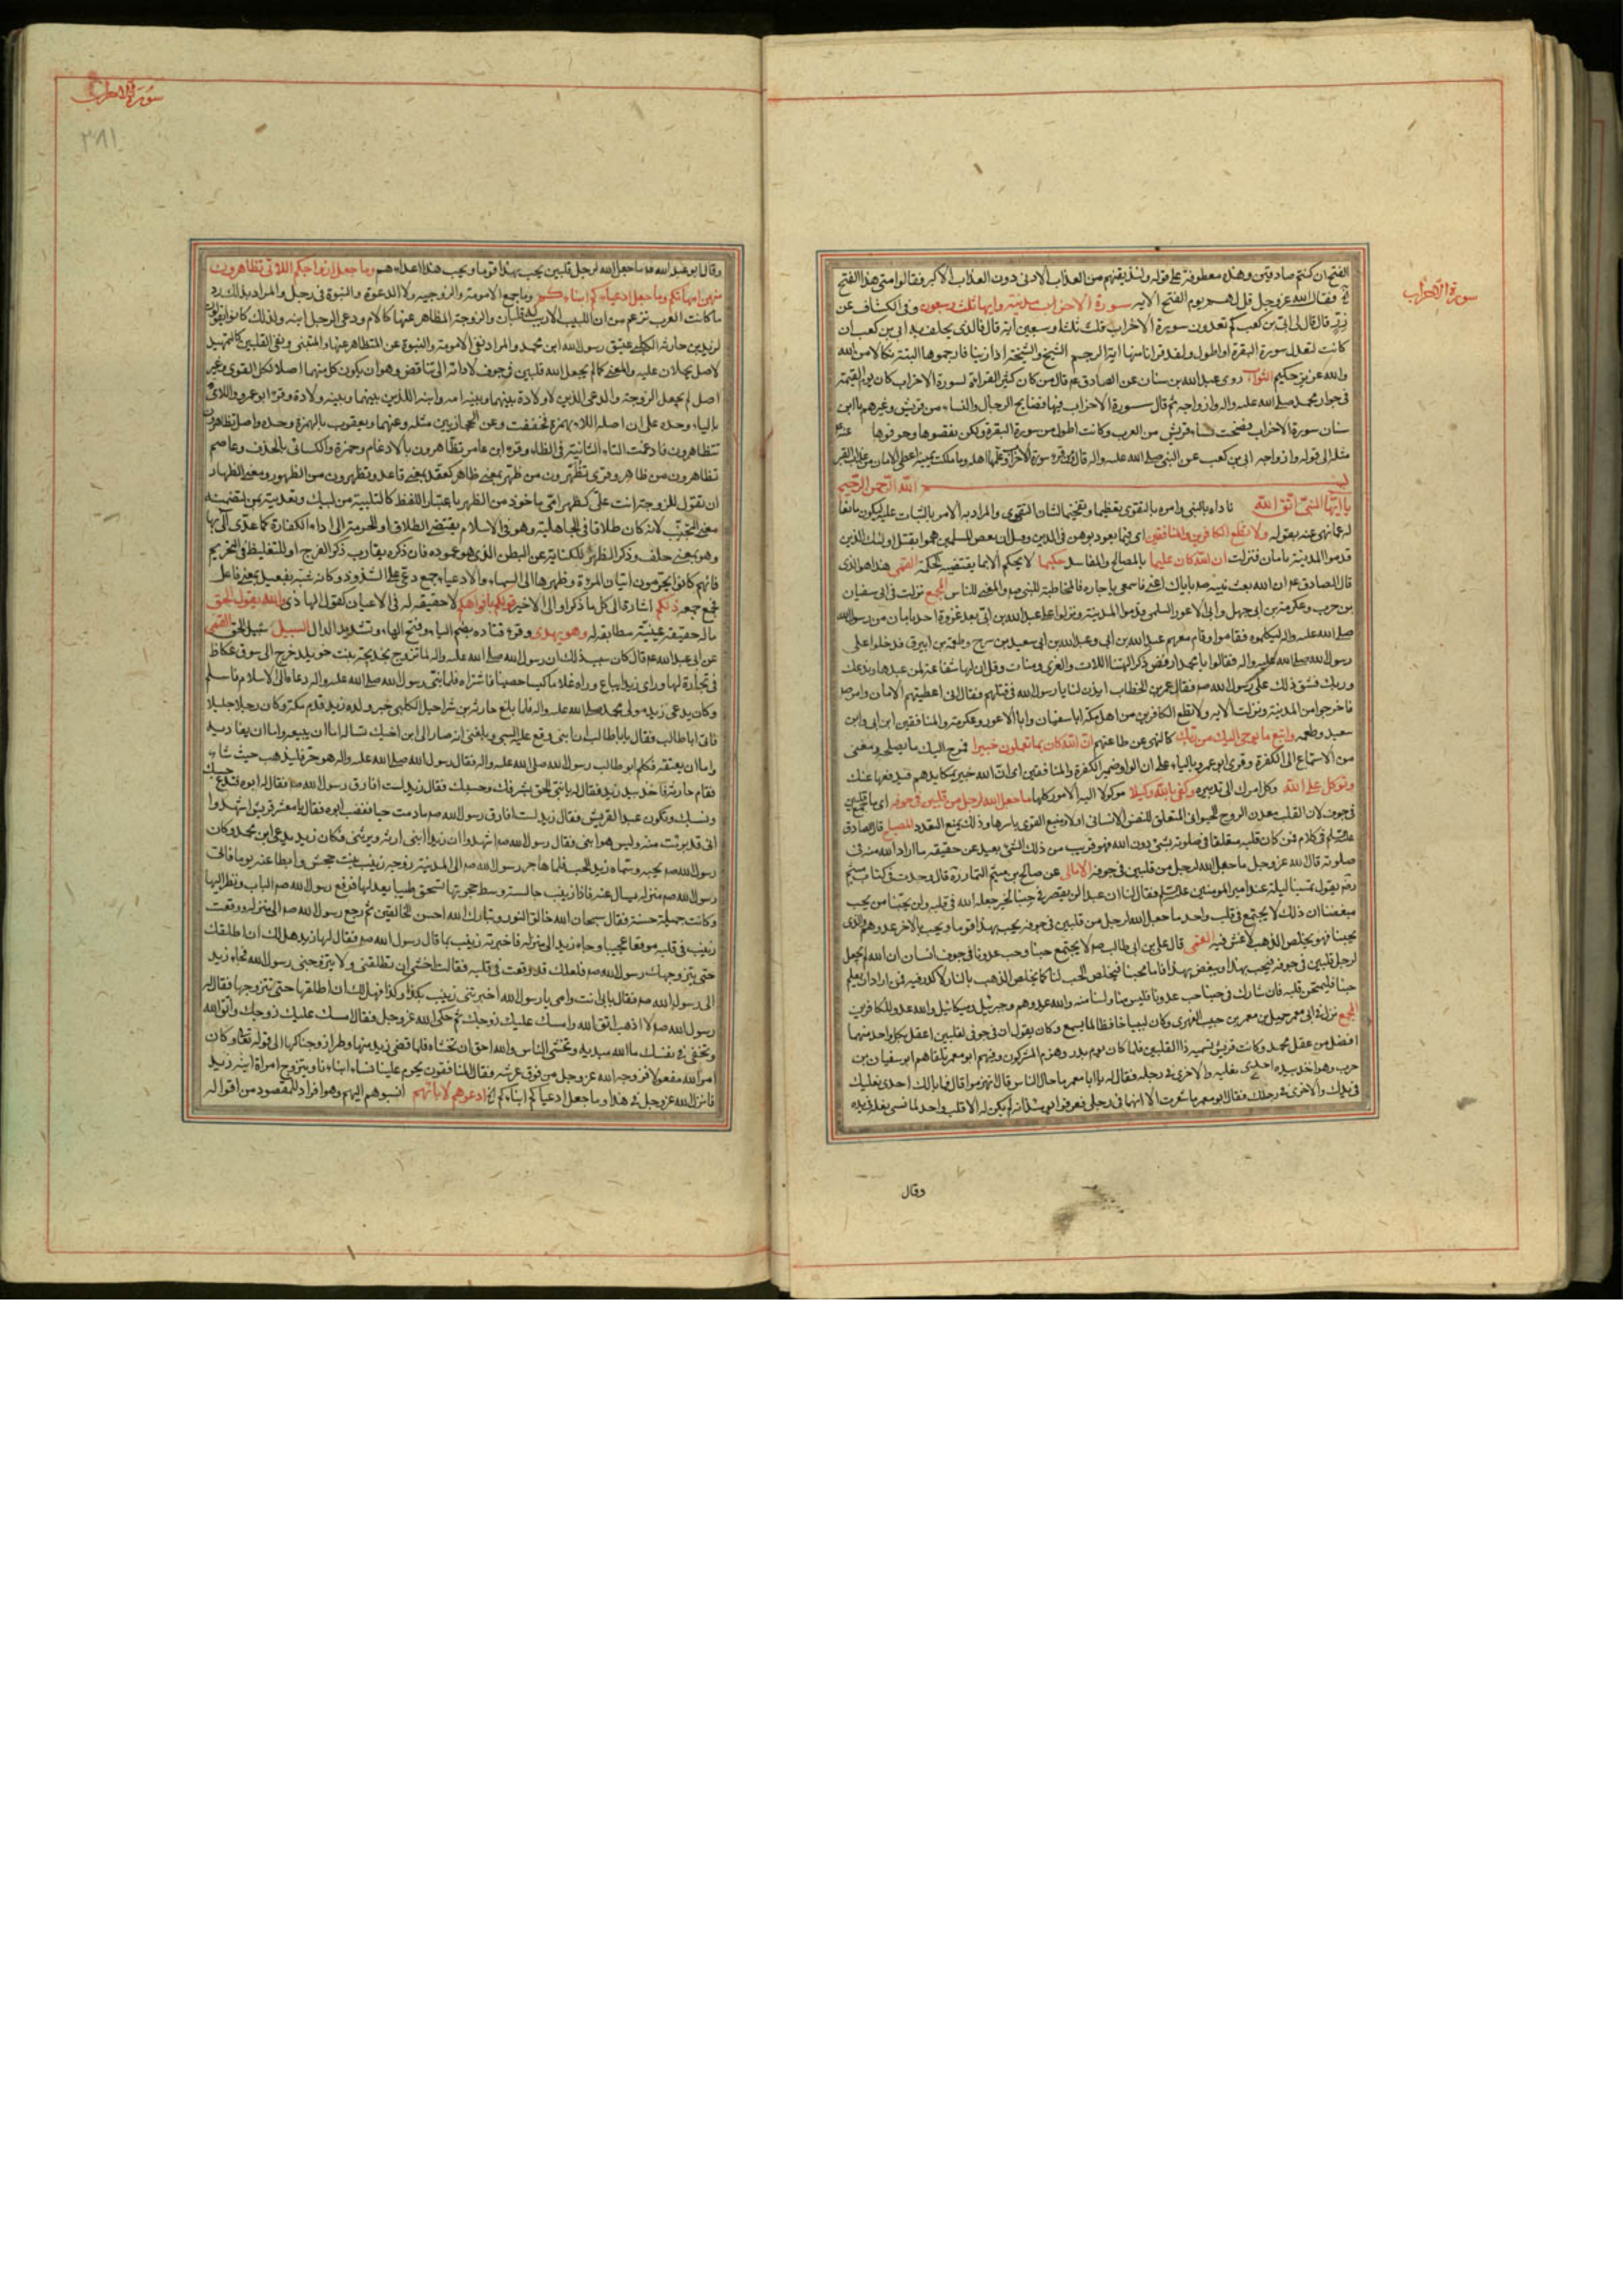 سورة الاحزاب
الفتح ان كنتم صادقين وهذه معطوفة على قوله ولنذيقنهم من العذاب الادنى دون العذاب الاكبر فقالوا متى هذا الفتح
فقال الله عز وجل قل لهم يوم الفتح الآية سورة الاحزاب مدنية وآيها ثلث وسبعون وفى الكشاف عن
زر قال قال لى ابى بن كعب كم تعدون سورة الاحزاب قلت ثلثا وسبعين آية قال فالذى يحلف به ابى بن كعب ان
كانت لتعدل سورة البقرة او اطول ولقد قرأنا منها آية الرجم الشيخ والشيخة اذا زنيا فارجموها البتة نكالا من الله
والله عزيز حكيم الثواب روى عبد الله بن سنان عن الصادق ع قال من كان كثير القراءة لسورة الاحزاب كان يوم القيمة
فى جوار محمد صلى الله عليه واله وازواجه ثم قال سورة الاحزاب فيها فضايح الرجال والنساء من قريش وغيرهم يا ابن
سنان سورة الاحزاب فضحت نساء قريش من العرب وكانت اطول من سورة البقرة ولكن نقصوها وحرفوها
الى قوله وازواجه ابى بن كعب عن النبى صلى الله عليه واله قال من قرء سورة الاحزاب وعلمها اهله وما ملكت يمينه اعطى الامان من عذاب القبر
بسم الله الرحمن الرحيم
يا ايها النبى اتق الله ناداه بالنبى وامره بالتقوى تعظيما وتفخيما لشان التقوى والمراد به الامر بالثبات عليه ليكون مانعا
له عما نهى عنه بقوله ولا تطع الكافرين والمنافقين اى فيما يعود بوهن فى الدين
قدموا المدينة بامان فنزلت ان الله كان عليما بالمصالح والمفاسد حكيما لا يحكم الا بما يقتضيه الحكمة القمى هذا هو الذى
قال الصادق ع ان الله بعث نبيه باياك اعنى فاسمعى يا جاره فالمخاطبة للنبى ص والمعنى للناس المجمع نزلت فى ابى سفيان
بن حرب وعكرمة بن ابى جهل وابى الاعور السلمى قدموا المدينة ونزلوا على عبد الله بن ابى بعد غزوة احد بامان من رسول الله
صلى الله عليه واله ليكلموه فقاموا وقام معهم عبد الله بن ابى وعبد الله بن ابى سعيد بن سرح وطعمة بن ابيرق فدخلوا على
رسول الله صلى الله عليه واله فقالوا يا محمد ارفض ذكر الهتنا اللات والعزى ومنات وقل ان لها شفاعة لمن عبدها وندعك
وربك فشق ذلك على رسول الله ص فقال عمر بن الخطاب ايذن لنا يا رسول الله فى قتلهم فقال انى اعطيتهم الامان وامر ص
فاخرجوا من المدينة ونزلت الآية ولا تطع الكافرين من اهل مكة ابا سفيان وابا الاعور وعكرمة والمنافقين ابن ابى وابن
سعيد وطعمه واتبع ما يوحى اليك من ربك كالنهى عن طاعتهم ان الله كان بما تعملون خبيرا فموح اليك ما يصلحه ومغنى
من الاستماع الى الكفرة وقرى ابو عمرو بالياء على ان الواو ضمير الكفرة والمنافقين اى ان الله خبير بمكايدهم فيدفعها عنك
وتوكل على الله وكل امرك الى تدبيره وكفى بالله وكيلا موكولا اليه الامور كلها ما جعل الله لرجل من قلبين فى جوفه اى ما جمع قلبين
فى جوف لان القلب معدن الروح الحيوانى المتعلق للنفس الانسانى اولا ومنبع القوى باسرها وذلك يمنع التعدد المصباح قال الصادق
عليه السلام فى كلام فمن كان قلبه متعلقا فى صلوته بشئ دون الله فهو قريب من ذلك الشئ بعيد عن حقيقة ما اراد الله منه فى
صلوته قال الله عز وجل ما جعل الله لرجل من قلبين فى جوفه الامالى عن صالح بن ميثم التمار ره قال وجدت فى كتاب ميثم
رض يقول تمسينا ليلة عند امير المؤمنين عليه السلام فقال لنا ان عبدا لن يقصر فى حبنا لخير جعله الله فى قلبه ولن يحبنا من يحب
مبغضنا ان ذلك لا يجتمع فى قلب واحد ما جعل الله لرجل من قلبين فى جوفه يحب بهذا قوما ويحب بالآخر عدوهم والذى
يحبنا فهو يخلص حبنا كما يخلص الذهب لا غش فيه القمى قال على بن ابى طالب ص لا يجتمع حبنا وحب عدونا فى جوف انسان ان الله لم يجعل
لرجل قلبين فى جوفه فيحب بهذا ويبغض بهذا فاما محبنا فيخلص الحب لنا كما يخلص الذهب بالنار لا كدر فيه فمن اراد ان يعلم
حبنا فليمتحن قلبه فان شارك فى حبنا حب عدونا فليس منا ولسنا منه والله عدوهم وجبرئيل وميكائيل والله عدو للكافرين
المجمع نزلت فى ابى معمر جميل بن معمر بن حبيب الفهرى وكان لبيبا حافظا لما يسمع وكان يقول ان فى جوفى لقلبين اعقل بكل واحد منهما
افضل من عقل محمد وكانت قريش تسميه ذا القلبين فلما كان يوم بدر وهزم المشركون وفيهم ابو معمر تلقاهم ابو سفيان بن
حرب وهو اخذ بيده احدى نعليه والاخرى فى رجله فقال له يا ابا معمر ما حال الناس قال انهزموا قال فما بالك احدى نعليك
فى يدك والاخرى فى رجلك فقال ابو معمر ما شعرت الا انهما فى رجلى فعرفوا يومئذ انه لم يكن له الا قلب واحد لما نسى نعله فى يده
وقال
سورة الاحزاب
٣٨١
وقال ابو عبد الله ع ما جعل الله لرجل قلبين يحب بهذا قوما ويحب بهذا اعداءهم وما جعل ازواجكم اللائى تظاهرون
منهن امهاتكم وما جعل ادعياءكم ابناءكم وما جمع الامومة والزوجية ولا الدعوة والبنوة فى رجل والمراد بذلك رد
ما كانت العرب تزعم من ان اللبيب الاريب له قلبان والزوجة المظاهر عنها كالام ودعى الرجل ابنه ولذلك كانوا يقولون
لزيد بن حارثة الكلبى عتيق رسول الله ابن محمد والمراد نفى الامومة والبنوة عن المتظاهر عنها والمتبنى ونفى القلبين لتمهيد
لاصل يحملان عليه والمعنى كما لم يجعل الله قلبين فى جوف لادائه الى تناقض وهو ان يكون كل منهما اصلا لكل القوى وغير
اصل لم يجعل الزوجة والدعى الذين لا ولادة بينهما وبينه امه وابنه اللذين بينهما وبينه ولادة وقرء ابو عمرو واللاى
بالياء وحده على ان اصله اللاء بهمزة فخففت وعن الحجازيين مثله وعنهما ويعقوب بالهمزة وحده واصل تظاهرون
تتظاهرون فادغمت التاء الثانية فى الظاء وقرء ابن عامر تظاهرون بالادغام وحمزة والكسائى بالحذف وعاصم
تظاهرون من ظاهر وقرى تظهرون من ظهر بمعنى ظاهر كعقد بمعنى عاقد وتظهرون من الظهور ومعنى الظهار
ان يقول للزوجة انت على كظهر امى ماخوذ من الظهر باعتبار اللفظ كالتلبية من لبيك وتعديته بمن لتضمينه
معنى التجنب لانه كان طلاقا فى الجاهلية وهو فى الاسلام يقتضى الطلاق او الحرمة الى اداء الكفارة كما عدى آلى بها
وهو بمعنى حلف وذكر الظهر للكناية عن البطن الذى هو عموده فان ذكره يقارب ذكر الفرج او للتغليظ فى التحريم
فانهم كانوا يحرمون اتيان المرءة وظهرها الى السماء والادعياء جمع دعى على الشذوذ وكانه شبه بفعيل بمعنى فاعل
فجمع جمعه ذلكم اشارة الى كل ما ذكر او الى الاخير قولكم بافواهكم لا حقيقة له فى الاعيان كقول الهاذى والله يقول الحق
ماله حقيقة عينية مطابقة له وهو يهدى وقرء قتاده بضم الياء وفتح الهاء وتشديد الدال السبيل سبيل الحق القمى
عن ابى عبد الله ع قال كان سبب ذلك ان رسول الله صلى الله عليه واله لما تزوج بخديجة بنت خويلد خرج الى سوق عكاظ
فى تجارة لها وراى زيدا يباع وراه غلاما كيسا حصينا فاشتراه فلما نبئ رسول الله صلى الله عليه واله دعاه الى الاسلام فاسلم
وكان يدعى زيد مولى محمد صلى الله عليه واله فلما بلغ حارثة بن شراحيل الكلبى خبر ولده زيد قدم مكة وكان رجلا جليلا
فاتى ابا طالب فقال يا ابا طالب ان ابنى وقع عليه السبى وبلغنى انه صار الى ابن اخيك تساله اما ان يبيعه واما ان يفاديه
واما ان يعتقه فكلم ابو طالب رسول الله صلى الله عليه واله فقال رسول الله صلى الله عليه واله هو حر فليذهب حيث شاء
فقام حارثة فاخذ بيد زيد فقال له يا بنى الحق بشرفك وحسبك فقال زيد لست افارق رسول الله ص فقال له ابوه فتدع حسبك
ونسبك وتكون عبدا لقريش فقال زيد لست افارق رسول الله ص ما دمت حيا فغضب ابوه فقال يا معشر قريش اشهدوا
انى قد برئت منه وليس هو ابنى فقال رسول الله ص اشهدوا ان زيدا ابنى ارثه ويرثنى فكان زيد يدعى ابن محمد وكان
رسول الله ص يحبه وسماه زيد الحب فلما هاجر رسول الله ص الى المدينة زوجه زينب بنت جحش وابطا عنه يوما فاتى
رسول الله ص منزله يسال عنه فاذا زينب جالسة وسط حجرتها تسحق طيبا بيدها فدفع رسول الله ص الباب ونظر اليها
وكانت جميلة حسنة فقال سبحان الله خالق النور وتبارك الله احسن الخالقين ثم رجع رسول الله ص الى منزله ووقعت
زينب فى قلبه موقعا عجيبا وجاء زيد الى منزله فاخبرته زينب بما قال رسول الله ص فقال لها زيد هل لك ان اطلقك
حتى يتزوجك رسول الله ص فلعلك قد وقعت فى قلبه فقالت اخشى ان تطلقنى ولا يتزوجنى رسول الله فجاء زيد
الى رسول الله ص فقال بابى انت وامى يا رسول الله اخبرتنى زينب بكذا وكذا فهل لك ان اطلقها حتى تتزوجها فقال له
رسول الله ص لا اذهب اتق الله وامسك عليك زوجك ثم حكى الله عز وجل فقال امسك عليك زوجك واتق الله
وتخفى فى نفسك ما الله مبديه وتخشى الناس والله احق ان تخشاه فلما قضى زيد منها وطرا زوجناكها الى قوله تعالى وكان
امر الله مفعولا فزوجه الله عز وجل من فوق عرشه فقال المنافقون يحرم علينا نساء ابناءنا ويتزوج امراة ابنه زيد
فانزل الله عز وجل فى هذا وما جعل ادعياءكم ابناءكم ادعوهم لابائهم انسبوهم اليهم وهو افراد للمقصود من اقواله